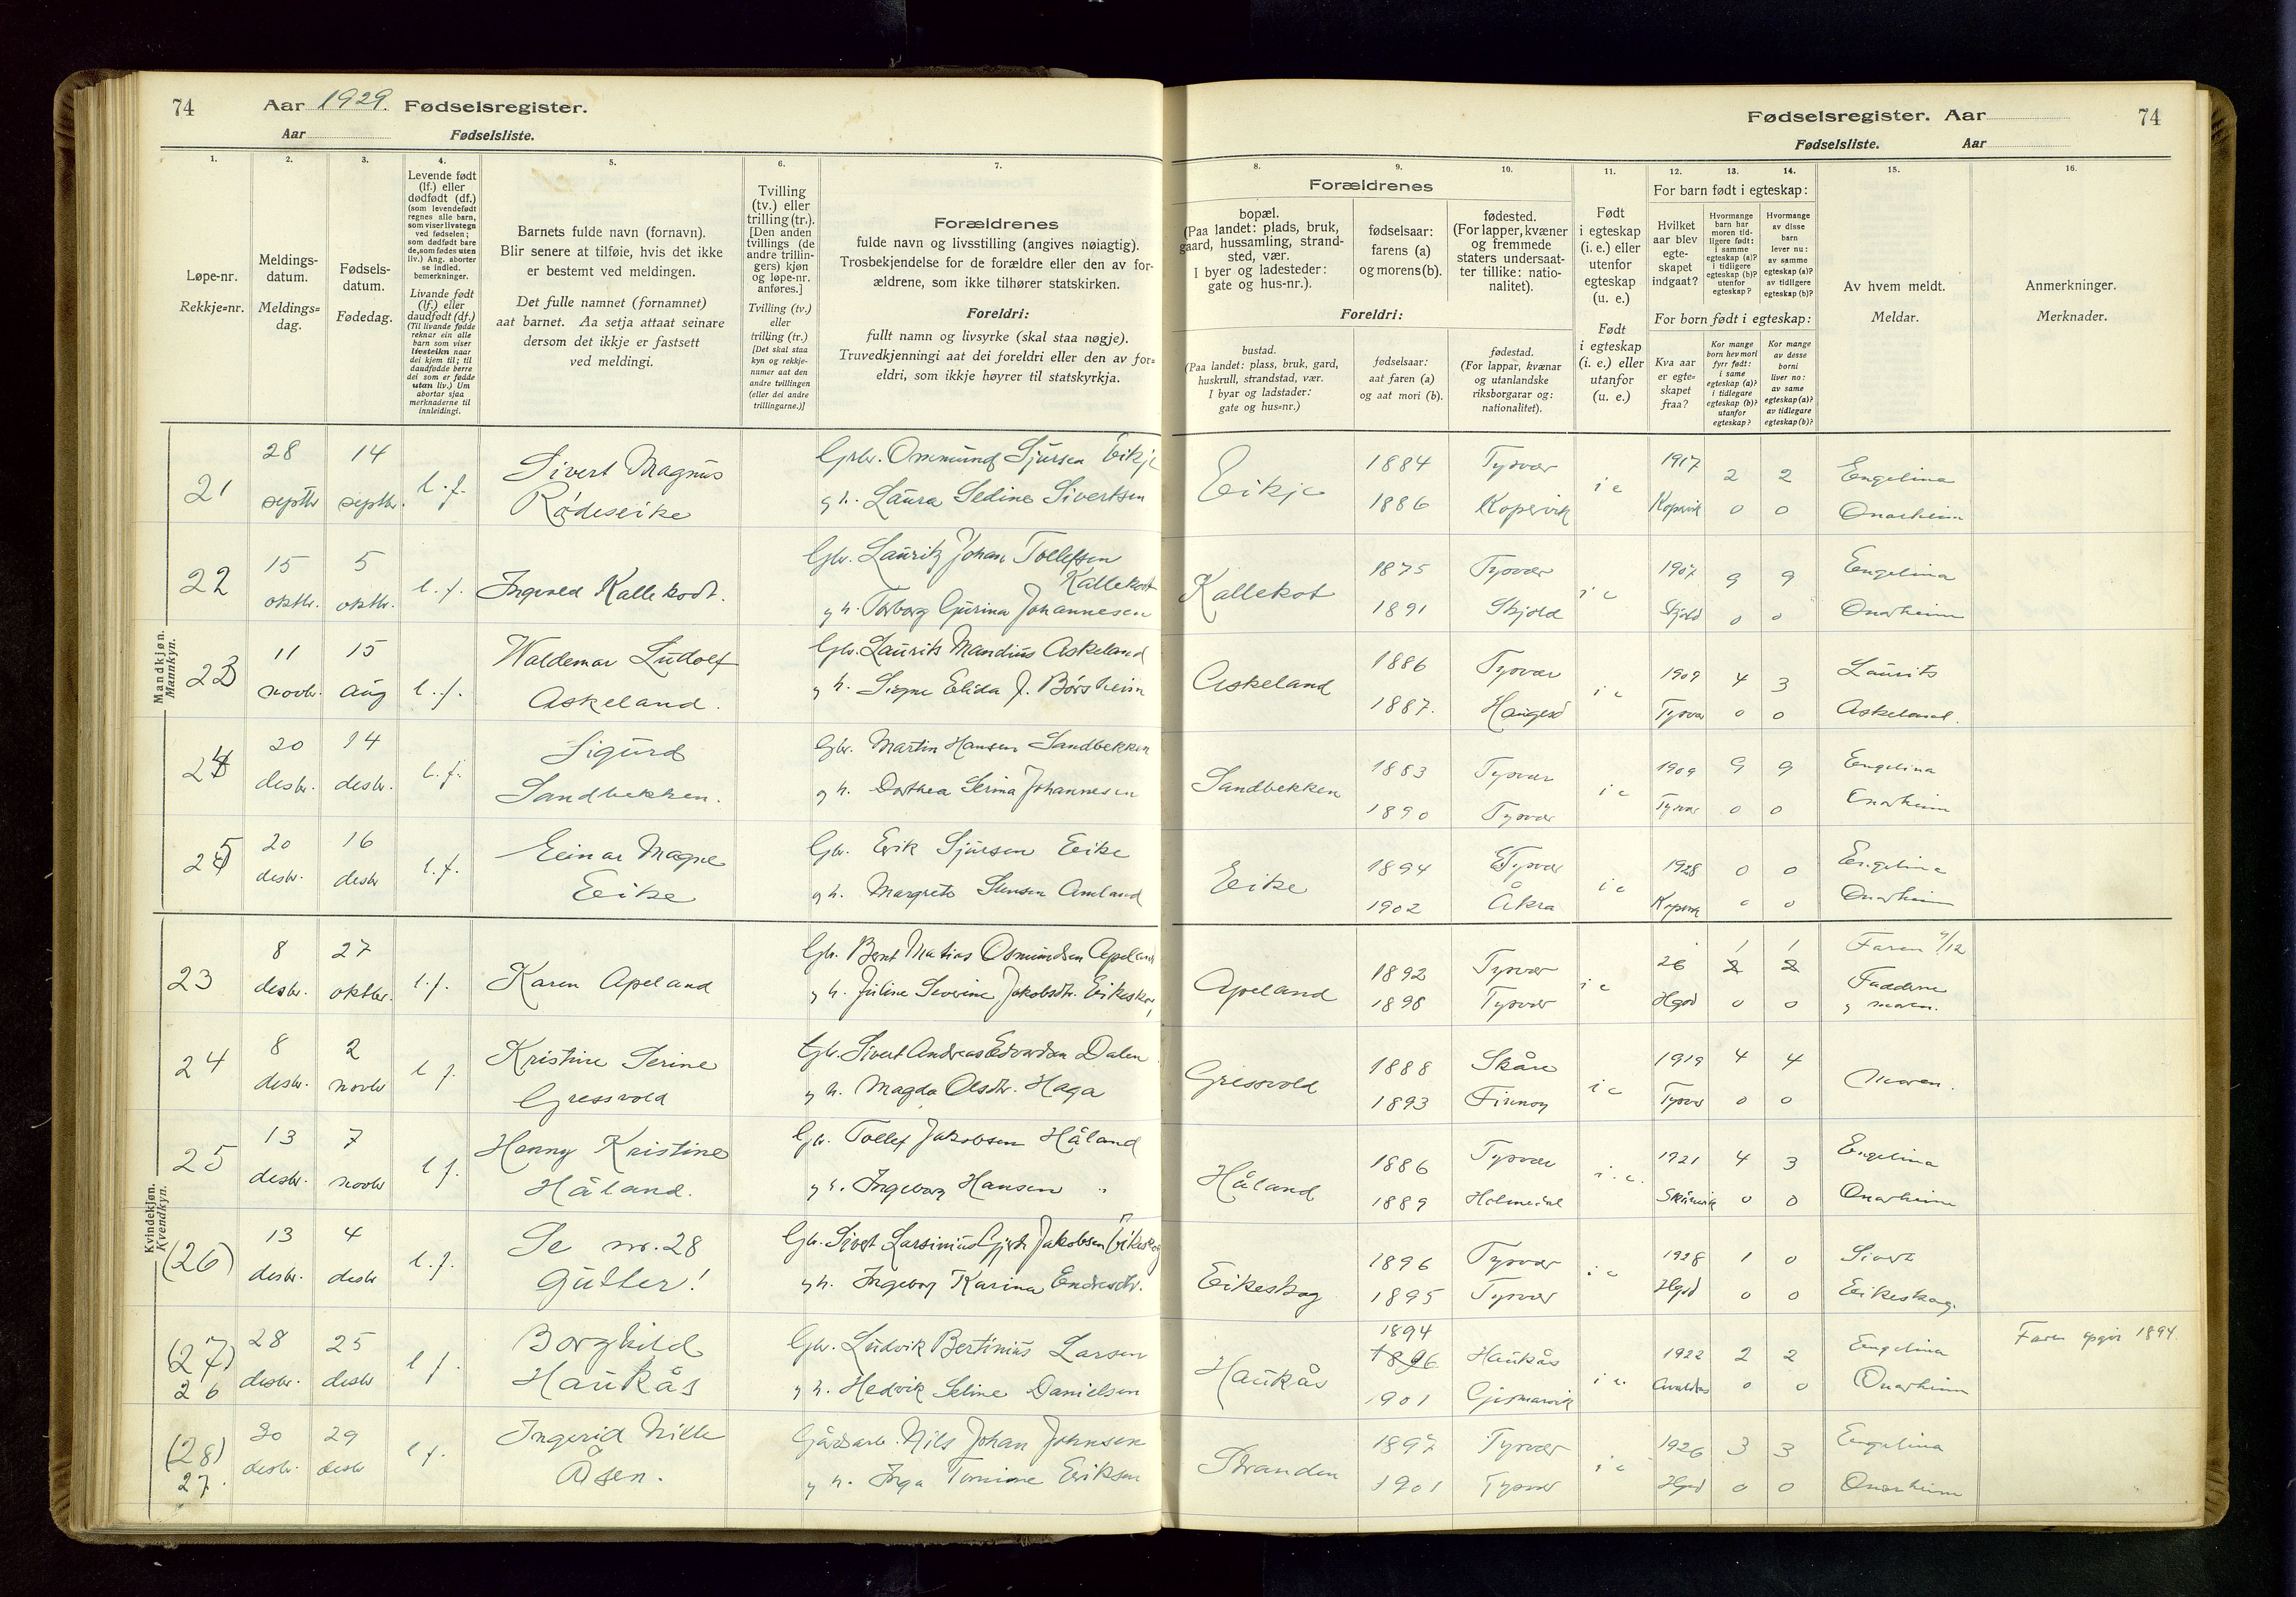 74 Aar 1929. Fødselsregister.
Aar Fødselsliste.
Fødselsregister. Aar 74
Fødselsliste. Aar
1. 2. 3. 4. 5. 6. 7. 8. 9. 10. 11. 12. 13. 14. 15. 16.
Løpe-nr.
Rekkje-nr.
Meldings-
datum.
Meldings=
dag.
Fødsels-
datum.
Fødedag.
Levende født
(lf.) eller
dødfødt (df.)
(som levendefødt
regnes alle barn,
som viser livstegn
ved fødselen;
som dødfødt bare
de, som fødes uten
liv.) Ang. aborter
se indled.
bemerkninger.
Livande født
(lf.) eller
daudfødt (df.)
(Til livande fødde
reknar ein alle
barn som viser
livsteikn naar
dei kjem til; til
daudfødde berre
dei som er fødde
utan liv.) Um
abortar sjaa
merknaderne til
innleidingi.
Barnets fulde navn (fornavn).
Blir senere at tilføie, hvis det ikke
er bestemt ved meldingen.
Det fulle namnet (fornamnet)
aat barnet. Aa setja attaat seinare
dersom det ikkje er fastsett
ved meldingi.
Tvilling
(tv.) eller
trilling (tr.).
[Den anden
tvillings (de
andre trillin-
gers) kjøn
og løpe-nr.
anføres.]
Tvilling (tv.)
eller
trilling (tr.)
[Det skal staa
kyn og rekkje-
numer aat den
andre tvillingen
(eller dei andre
trillingarne.)]
Forældrenes
fulde navn og livsstilling (angives nøiagtig).
Trosbekjendelse for de forældre eller den av for-
ældrene, som ikke tilhører statskirken.
Foreldri:
fullt namn og livsyrke (skal staa nøgje).
Truvedkjenningi aat dei foreldri eller den av for=
eldri, som ikkje høyrer til statskyrkja.
Forældrenes
bopæl.
(Paa landet: plads, bruk,
gaard, hussamling, strand-
sted, vær.
I byer og ladesteder:
gate og hus-nr.).
fødselsaar:
farens (a)
og morens (b).
fødested.
(For lapper, kvæner
og fremmede
staters undersaat-
ter tillike: natio-
nalitet).
Foreldri:
bustad.
(Paa landet: plass, bruk, gard,
huskrull, strandstad, vær.
I byar og ladstader:
gate og hus=nr.)
fødselsaar:
aat faren (a)
og aat mori (b).
fødestad.
(For lappar, kvænar
og utanlandske
riksborgarar og:
nationalitet).
Født
i egteskap
(i. e.) eller
utenfor
egteskap
(u. e.)
Født
i egteskap
(i. e.) eller
utanfor
(u. e.)
For barn født i egteskap:
Hvilket
aar blev
egte-
skapet
indgaat?
Hvormange
barn har
moren tid-
ligere født:
i samme
egteskap (a)?
i tidligere
egteskap (b)?
utenfor
egteskap?
Hvormange
av disse
barn
lever nu:
av samme
egteskap (a)?
av tidligere
egteskap (b)?
For born født i egteskap:
Kva aar
er egte-
skapet
fraa?
Kor mange
born hev mori
fyrr født:
i same
egteskap (a)?
i tidlegare
egteskap (b)?
utanfor
egteskap?
Kor mange
av desse
borni
liver no:
av same
egteskap (a)?
av tidlegare
egteskap (b)?
Av hvem meldt.
Meldar.
Anmerkninger.
Merknader.
Mandkjøn.
Mannkyn.
21 28 14 l.f. Sivert Magnus Gbr. Ommund Sjursen Eikje Eikje 1884 Tysvær i e 1917 2 2 Engelina
septbr septbr. Rødeseike g h. Laura Sedine Sivertsen 1886 Kopervik Kopervik 0 0 Onarheim
22 15 5 l.f. Ingvald Kallekodt. Gbr. Lauritz Johan Tollefsen Kallekodt Kallekot 1875 Tysvær i e 1907 9 9 Engelina
oktbr. oktbr. g h. Torborg Gurina Johannesen 1891 Skjold Skjold 0 0 Onarheim
23 11 15 l.f. Waldemar Ludolf Gbr. Laurits Mandius Askeland Askeland 1886 Tysvær i e 1909 4 3 Laurits
novbr. aug Askeland. g h. Signe Elida J. Børsheim 1887. Haugesd Tysvær 0 0 Askeland.
24 20 14 l.f. Sigurd Gbr. Martin Hansen Sandbekken Sandbekken 1883 Tysvær i e 1909 9 9 Engelina
desbr. desbr. Sandbekken. g h. Dorthea Serina Johannesen 1890 Tysvær Tysvær 0 0 Onarheim
25 20 16 l.f. Einar Magne Gbr. Erik Sjursen Eike Eike 1894 Tysvær i e 1928 0 0 Engelina
desbr. desbr Eike g h. Margrete Amland 1902 Åkra Kopervik 0 0 Onarheim
Kvindekjøn.
Kvendkyn.
23 8 27 l.f. Karen Apeland Gbr. Bernt Matias Osmundsen Apeland Apeland 1892 Tysvær i e 26 1 1 Faren 9/12
desbr. oktbr. g h. Juline Severine Jakobsdtr. Eikeskog 1898 Tysvær Hgsd 0 0 Fadderne
g moren.
24 8 2 l f. Kristine Serine Gbr. Sivert Andreas Edvardsen Dalen Gressvold 1888 Skåre i e 1919 4 4 Moren.
desbr. novbr Gressvold g h. Magda Olsdtr. Haga 1893 Finnøy Tysvær 0 0
25 13 7 l f. Henny Kristine Gbr. Tollef Jakobsen Håland Håland 1886 Tysvær i. e. 1921 4 3 Engelina
desbr. novbr Håland. g h. Ingeborg Hansen " 1889 Holmedal Skånevik 0 0 Onarheim
(26) 13 4 l.f. Se nr. 28 Gbr. Sivert Larsinius Gjert Jakobsen Eikeskog Eikeskog 1896 Tysvær i e 1928 1 0 Sivert
desbr. desbr Gutter! g h. Ingeborg Karina Endresdtr. 1895 Tysvær Hgsd 0 0 Eikeskog.
(27) 28 25 l f. Borghild Gbr. Ludvik Bertinius Larsen Haukås 1894 1896 Haukås i e. 1922 2 2 Engelina Faren opgir 1894.
26 desbr. desbr Haukås g h. Hedvik Seline Danielsen 1901 Gismarvik Avaldsn 0 0 Onarheim
(28) 30 29 l f. Ingerid Nille Gårdarb. Nils Johan Johnsen Stranden 1897 Tysvær i e 1926 3 3 Engelina
27. desbr. desbr Åsen. g h. Inga Tomine Eriksen 1901 Tysvær Hgsd 0 0 Onarheim